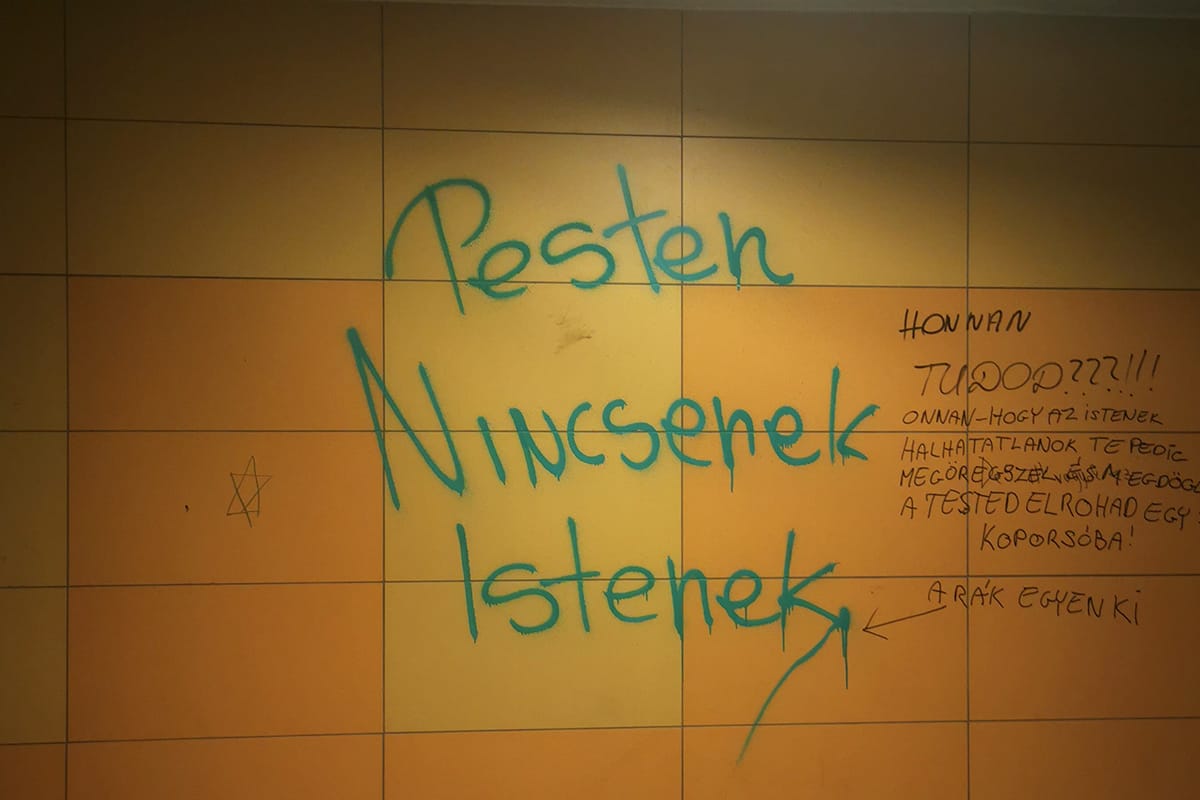 Pesten
Nincsenek
Istenek
HONNAN
TUDOD???!!!
ONNAN-HOGY AZ ISTENEK
HALHATATLANOK TE PEDIG
MEGÖREGSZEL ÉS MEGDÖGL
A TESTED ELROHAD EGY
KOPORSÓBA!
A RÁK EGYEN KI